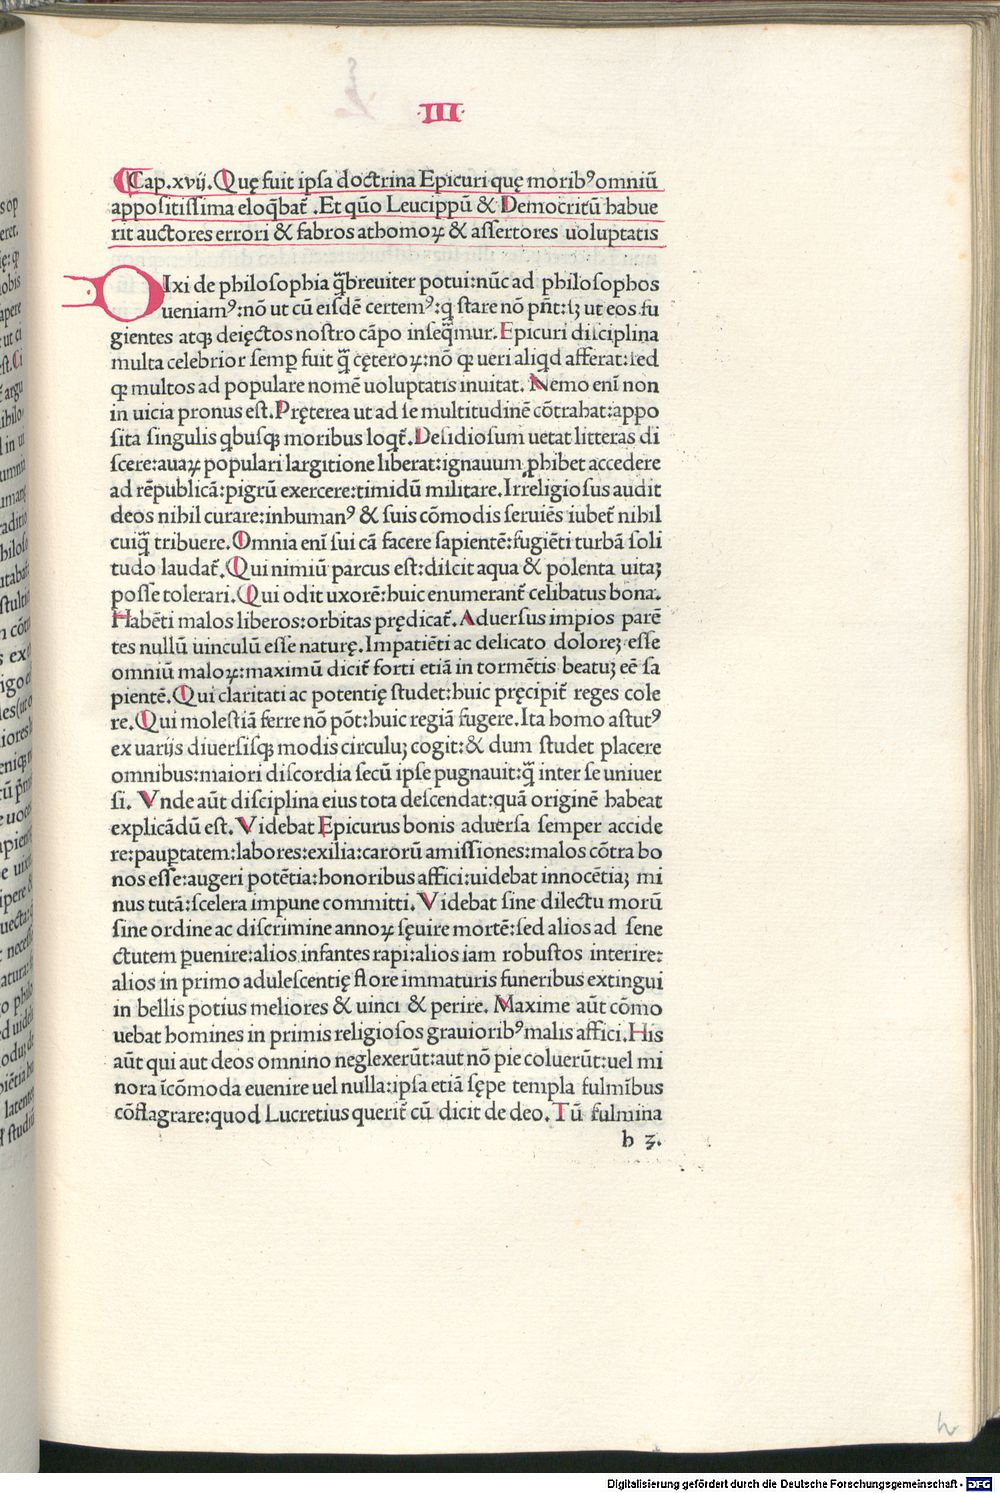 ·III·
Cap.xvij.Quę fuit ipſa doctrina Epicuri quę moribꝰ omniū
appoſitiſſima eloq̄bat̄ .Et quō Leucippū & Democritū habue
rit auctores errori & fabros athomoꝝ & aſſertores uoluptatis
DIxi de philoſophia q̄̄breuiter potui:nūc ad philoſophos
ueniamꝰ:nō ut cū eiſdē certemꝰ:q̇ ſtare nō pn̄t:ſꝫ ut eos fu
gientes atqꝫ deięctos noſtro cāpo inſeq̄mur.Epicuri diſciplina
multa celebrior ſemꝑ fuit q̄̄ cęteroꝝ:nō qꝛ ueri aliqd afferat:ſed
qꝛ multos ad populare nomē uoluptatis inuitat. Nemo enī non
in uicia pronus eſt.Pręterea ut ad ſe multitudinē cōtrahat:appo
ſita ſingulis qbuſqꝫ moribus loqt̄.Deſidioſum uetat litteras di
ſcere:auaꝝ populari largitione liberat:ignauum ꝓhibet accedere
ad rēpublicā:pigrū exercere:timidū militare.Irreligioſus audit
deos nihil curare:inhumanꝰ & ſuis cōmodis ſeruiēs iubet̄ nihil
cuiq̄̄ tribuere.Omnia enī ſui cā facere ſapientē:fugiēti turbā ſoli
tudo laudat̄.Qui nimiū parcus eſt:diſcit aqua & polenta uitaꝫ
poſſe tolerari.Qui odit uxorē:huic enumerant̄ celibatus bona.
Habēti malos liberos:orbitas prędicat̄.Aduerſus impios parē
tes nullū uinculū eſſe naturę.Impatiēti ac delicato doloreꝫ eſſe
omniū maloꝝ:maximū dicit̄ forti etiā in tormētis beatuꝫ eē ſa
pientē.Qui claritati ac potentię ſtudet:huic pręcipit̄ reges cole
re.Qui moleſtiā ferre nō pōt:huic regiā fugere.Ita homo aſtutꝰ
ex uarijs diuerſiſqꝫ modis circuluꝫ cogit:& dum ſtudet placere
omnibus:maiori diſcordia ſecū ipſe pugnauit:q̄̄ inter ſe uniuer
ſi. Vnde aūt diſciplina eius tota deſcendat:quā originē habeat
explicādū eſt.Videbat Epicurus bonis aduerſa ſemper accide
re:pauꝑtatem:labores:exilia:carorū amiſſiones:malos cōtra bo
nos eſſe:augeri potētia:honoribus affici:uidebat innocētiaꝫ mi
nus tutā:ſcelera impune committi.Videbat ſine dilectu morū
ſine ordine ac diſcrimine annoꝝ ſęuire mortē:ſed alios ad ſene
ctutem ꝑuenire:alios infantes rapi:alios iam robuſtos interire:
alios in primo aduleſcentię flore immaturis funeribus extingui
in bellis potius meliores & uinci & perire. Maxime aūt cōmo
uebat homines in primis religioſos grauioribꝰ malis affici.His
aūt qui aut deos omnino neglexerūt:aut nō pie coluerūt:uel mi
nora īcōmoda euenire uel nulla:ipſa etiā ſępe templa fulmībus
cōflagrare:quod Lucretius querit̄ cū dicit de deo.Tū fulmina
b 3.
Digitalisierung gefördert durch die Deutsche Forschungsgemeinschaft - DFG